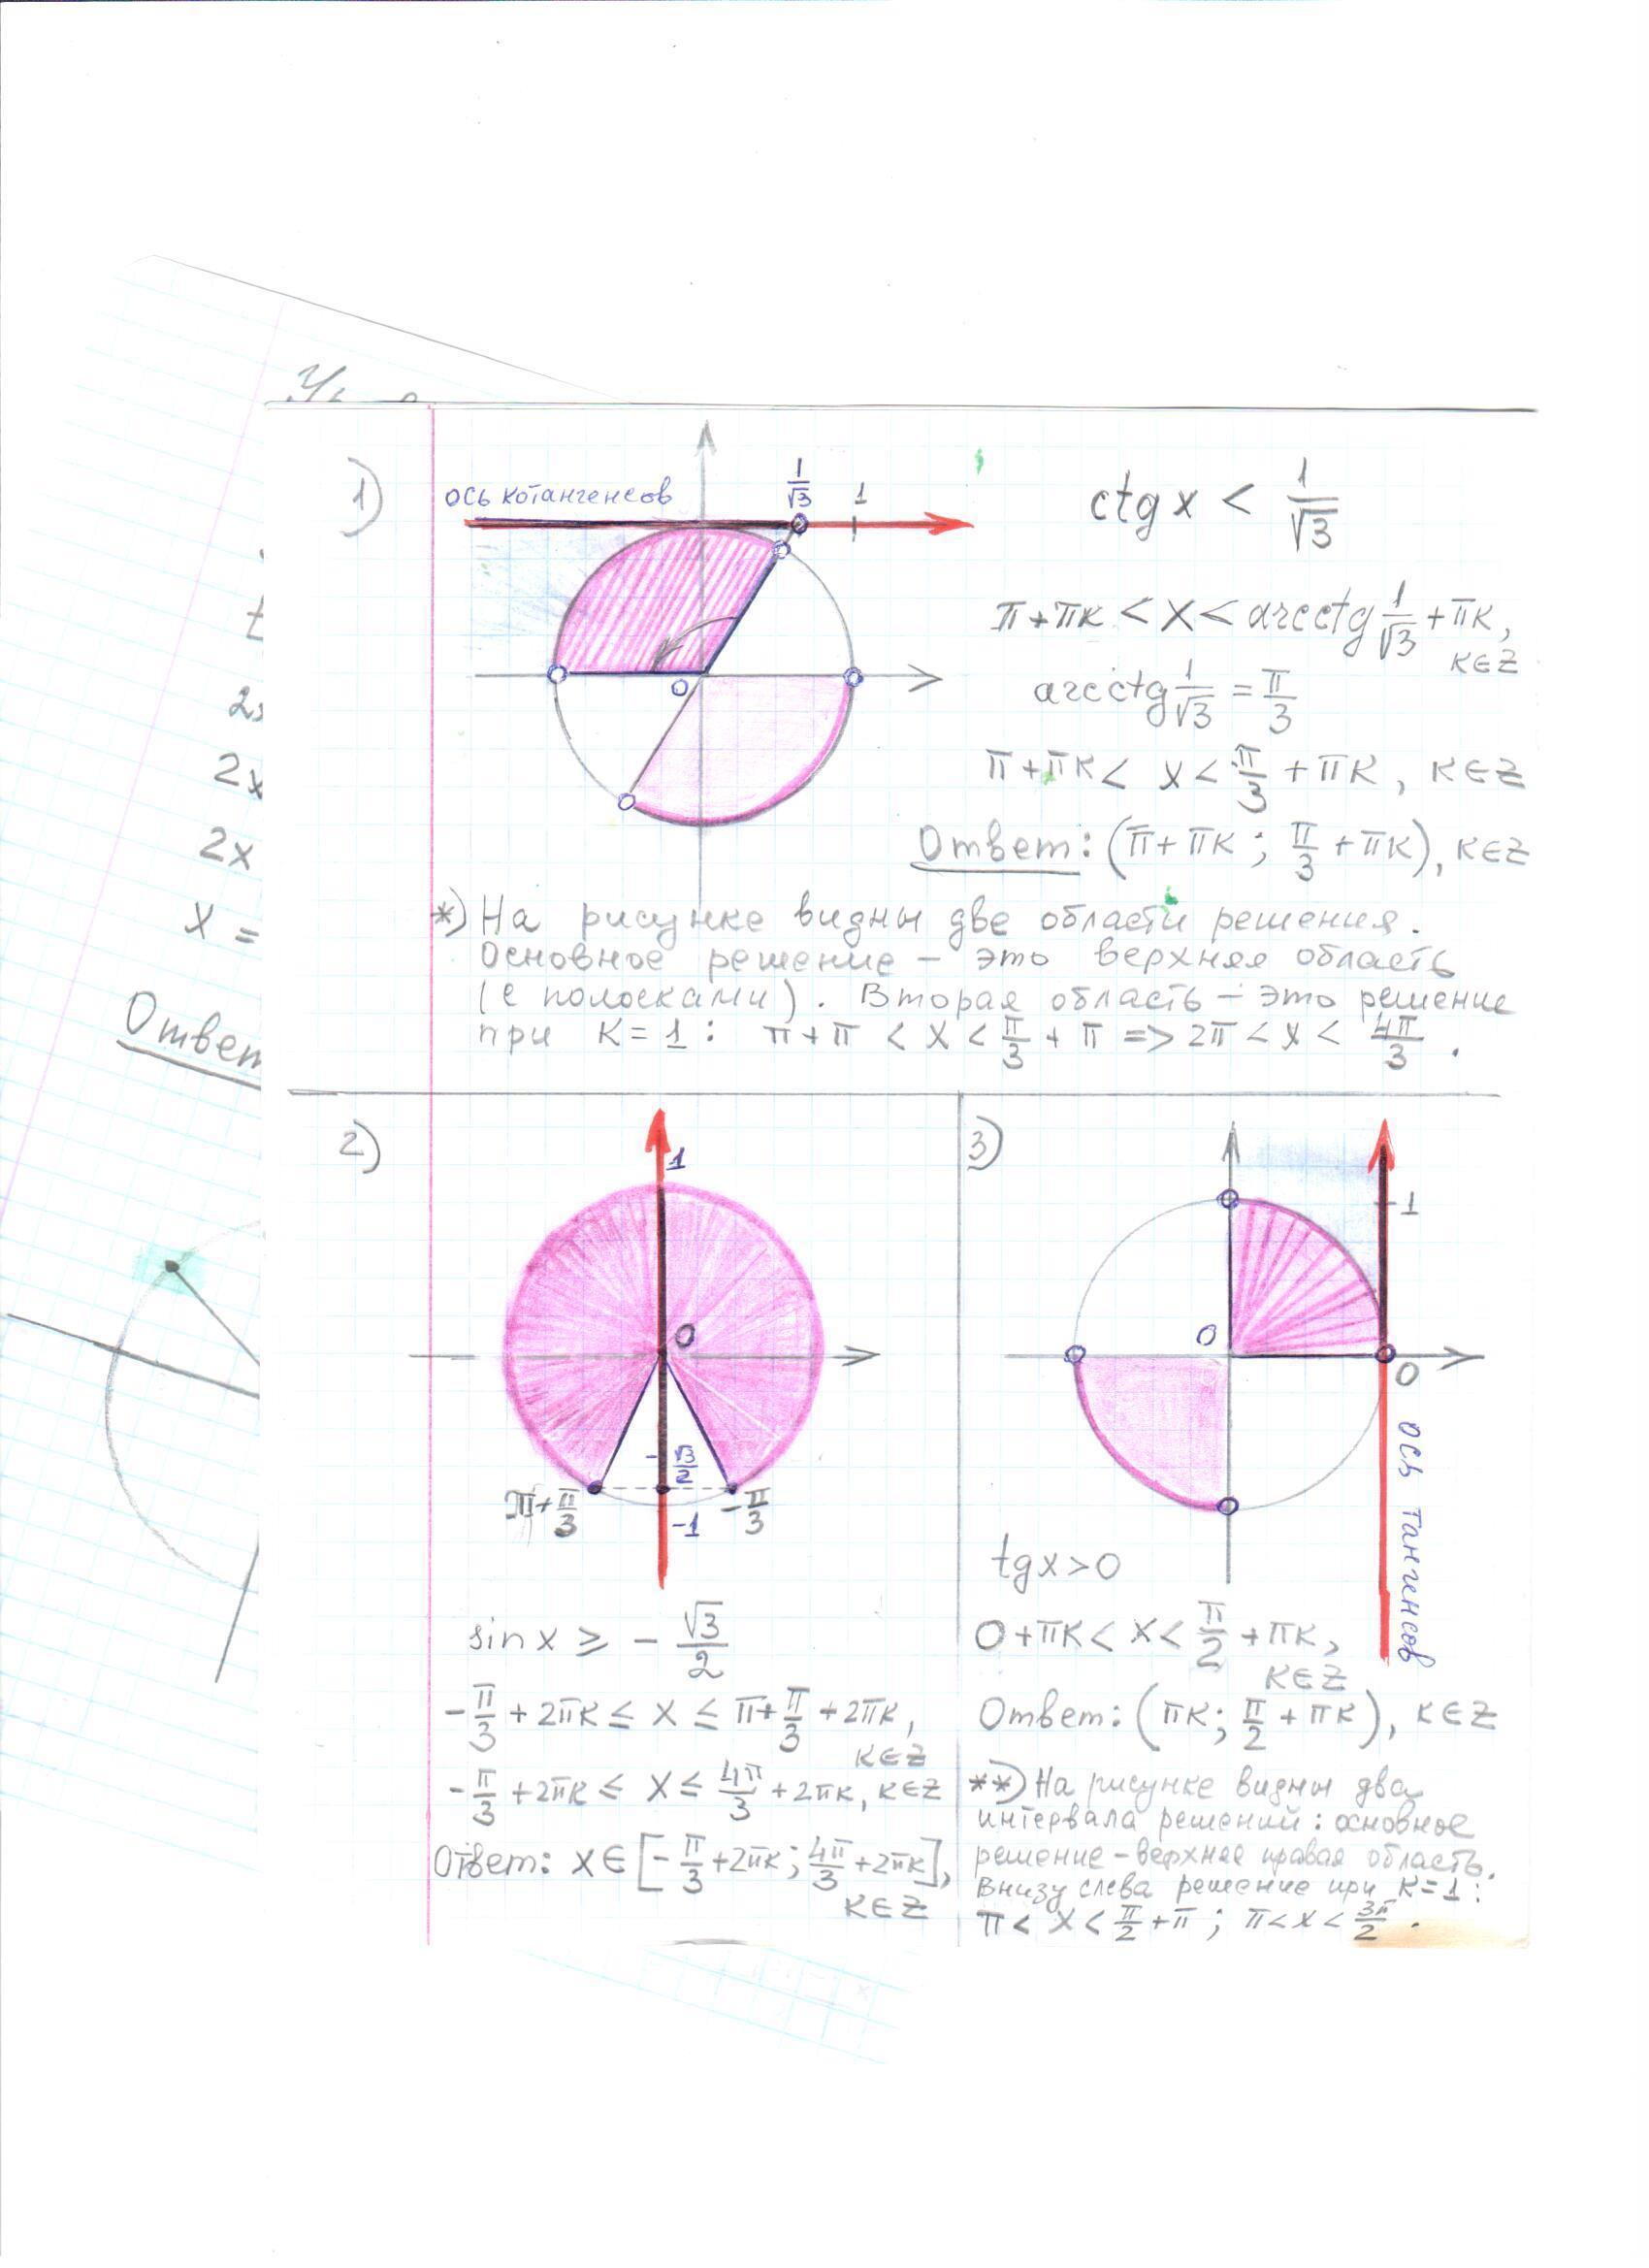 1)
ось котангенсов
1/√3
1
0
ctg x < 1/√3
π+πк < x < arcctg 1/√3 + πк,
к∈Z
arcctg 1/√3 = π/3
π+πк < x < π/3 + πк, к∈Z
Ответ: (π+πк; π/3 + πк), к∈Z
*) На рисунке видны две области решения.
Основное решение – это верхняя область
(с полосками). Вторая область – это решение
при к=1: π+π < x < π/3 + π => 2π < x < 4π/3.
t
2x
2x
2x
x =
Ответ
2)
1
0
-√3/2
π+π/3
-1
-π/3
sin x ⩾ -√3/2
-π/3 + 2πк ≤ x ≤ π+π/3 + 2πк,
к∈Z
-π/3 + 2πк ≤ x ≤ 4π/3 + 2πк, к∈Z
Ответ: x∈[-π/3+2πк; 4π/3+2πк],
к∈Z
3)
1
0
0
ось тангенсов
tg x > 0
0+πк < x < π/2 + πк,
к∈Z
Ответ: (πк; π/2 + πк), к∈Z
**) На рисунке видны два
интервала решений: основное
решение – верхняя правая область.
Внизу слева решение при к=1:
π < x < π/2 + π; π < x < 3π/2.